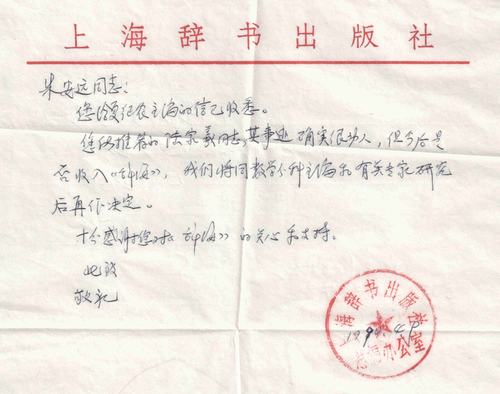 上海辞书出版社
朱安远同志：
您给夏征农主编的信已收悉。
您所推荐的陆家羲同志，其事迹确实很动人，但今后是
否收入《辞海》，我们将同数学分科主编和有关专家研究
后再作决定。
十分感谢您对《辞海》的关心和支持。
此致
敬礼
上海辞书出版社
辞海办公室